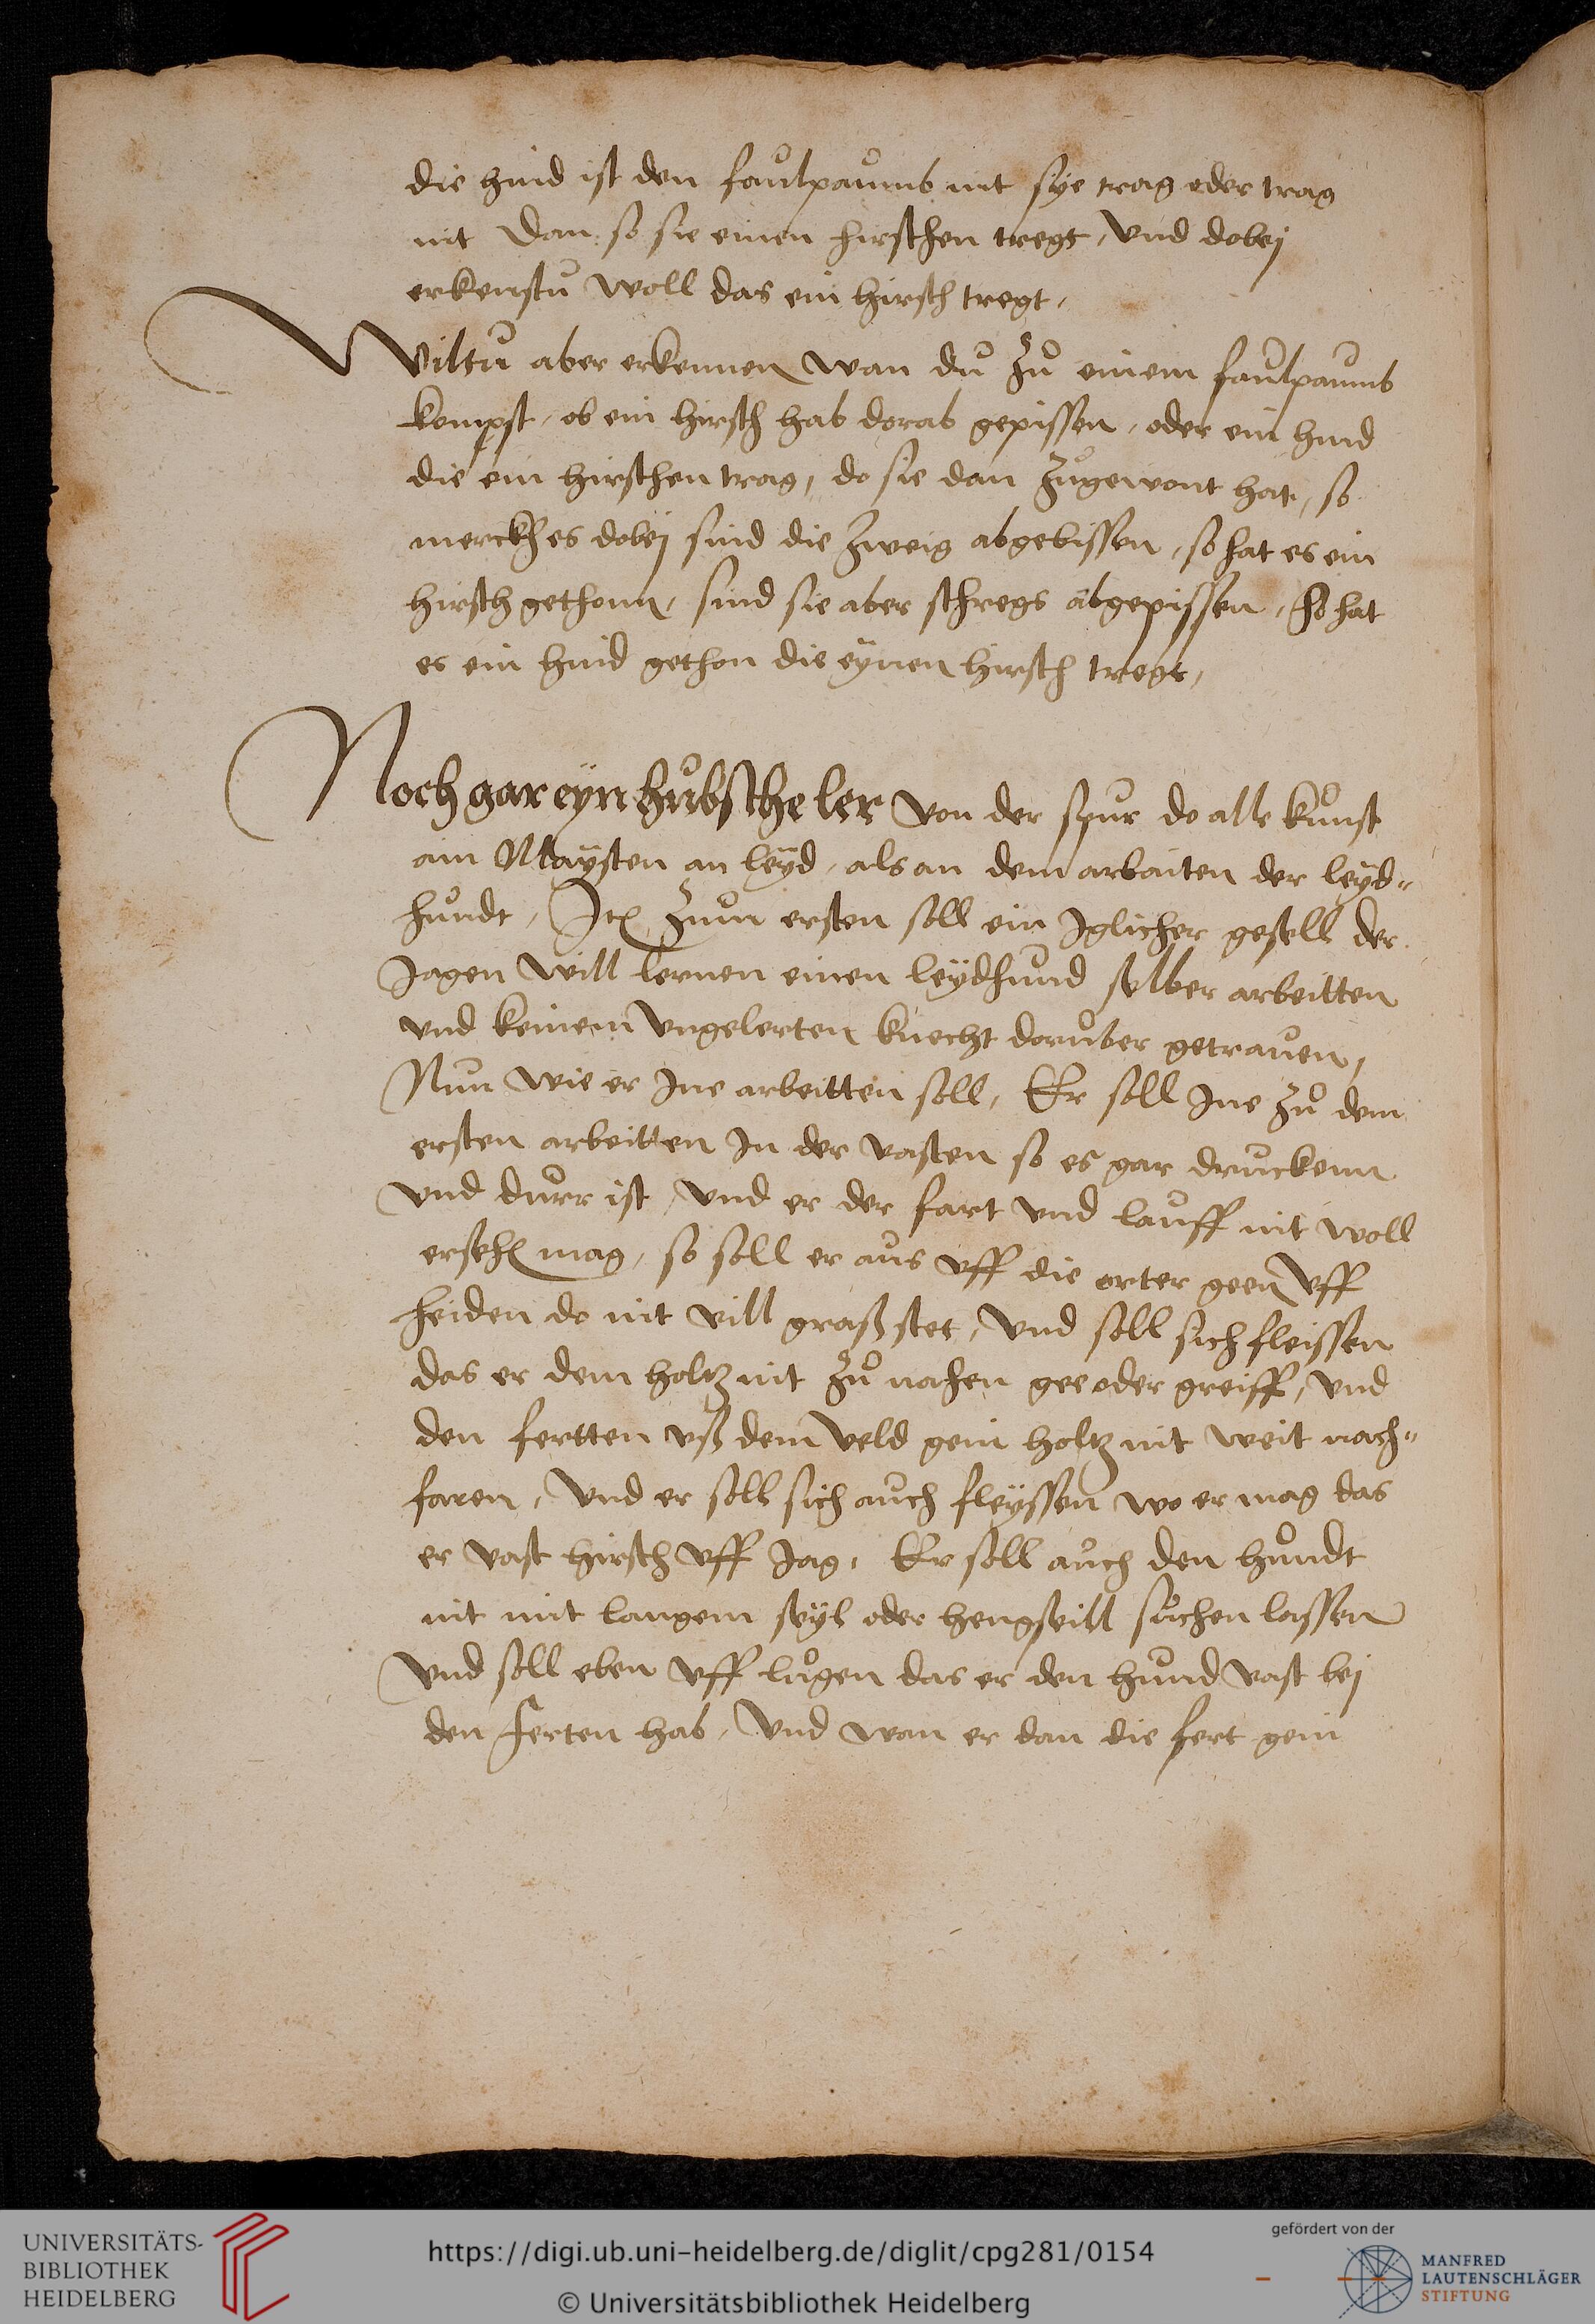 die hind ist den faulpaumb nit sye trag oder trag
nit Dan so sie einen hirschen tregt, Vnd dobej
erkenstu woll das ein hirsch tregt,
Wiltu aber erkennen wan du zu einem faulpaumb
kompst, ob ein hirsch hab dorab gepissen, oder ein hind
die ein hirschen trag, do sie dan zugewont hat, so
merckh es dobej sind die zweig abgebissen, so hat es ein
hirsch gethonn, sind sie aber schregs abgepissen, So hat
es ein hind gethon die eynen hirsch tregt,
Noch gar eyn hubsche ler von der spur do alle kunst
am Maÿsten an leÿd, als an dem arbaiten der leÿd-
hundt, Itē zum ersten soll ein Iglicher gesell der
Jagen will lernen einen leÿdhund selber arbeitten
vnd keinem vngelerten knecht doruber getrauen,
Nun wie er Ine arbeitten soll, Er soll Ine zu dem
ersten arbeitten In der vasten so es gar druckenn
vnd durr ist, vnd er der fart vnd lauff nit woll
ersehē mag, so soll er aus vff die orter geen vff
heiden do nit vill graß stet, Vnd soll sich fleissen
das er dem holtz nit zu nahen gee oder greiff, vnd
den fertten vß dem veld gein holtz nit weit nach-
faren, Vnd er soll sich auch fleÿssen wo er mag das
er vast hirsch vff Jag, Er soll auch den hundt
nit mit langem seyl oder hengseill suchen lassen
Vnd soll eben vff lugen das er den hund vast bej
den ferten hab, Vnd wan er dan die fert gein
UNIVERSITÄTS-
BIBLIOTHEK
HEIDELBERG
https://digi.ub.uni-heidelberg.de/diglit/cpg281/0154
© Universitätsbibliothek Heidelberg
gefördert von der
MANFRED
LAUTENSCHLÄGER
STIFTUNG